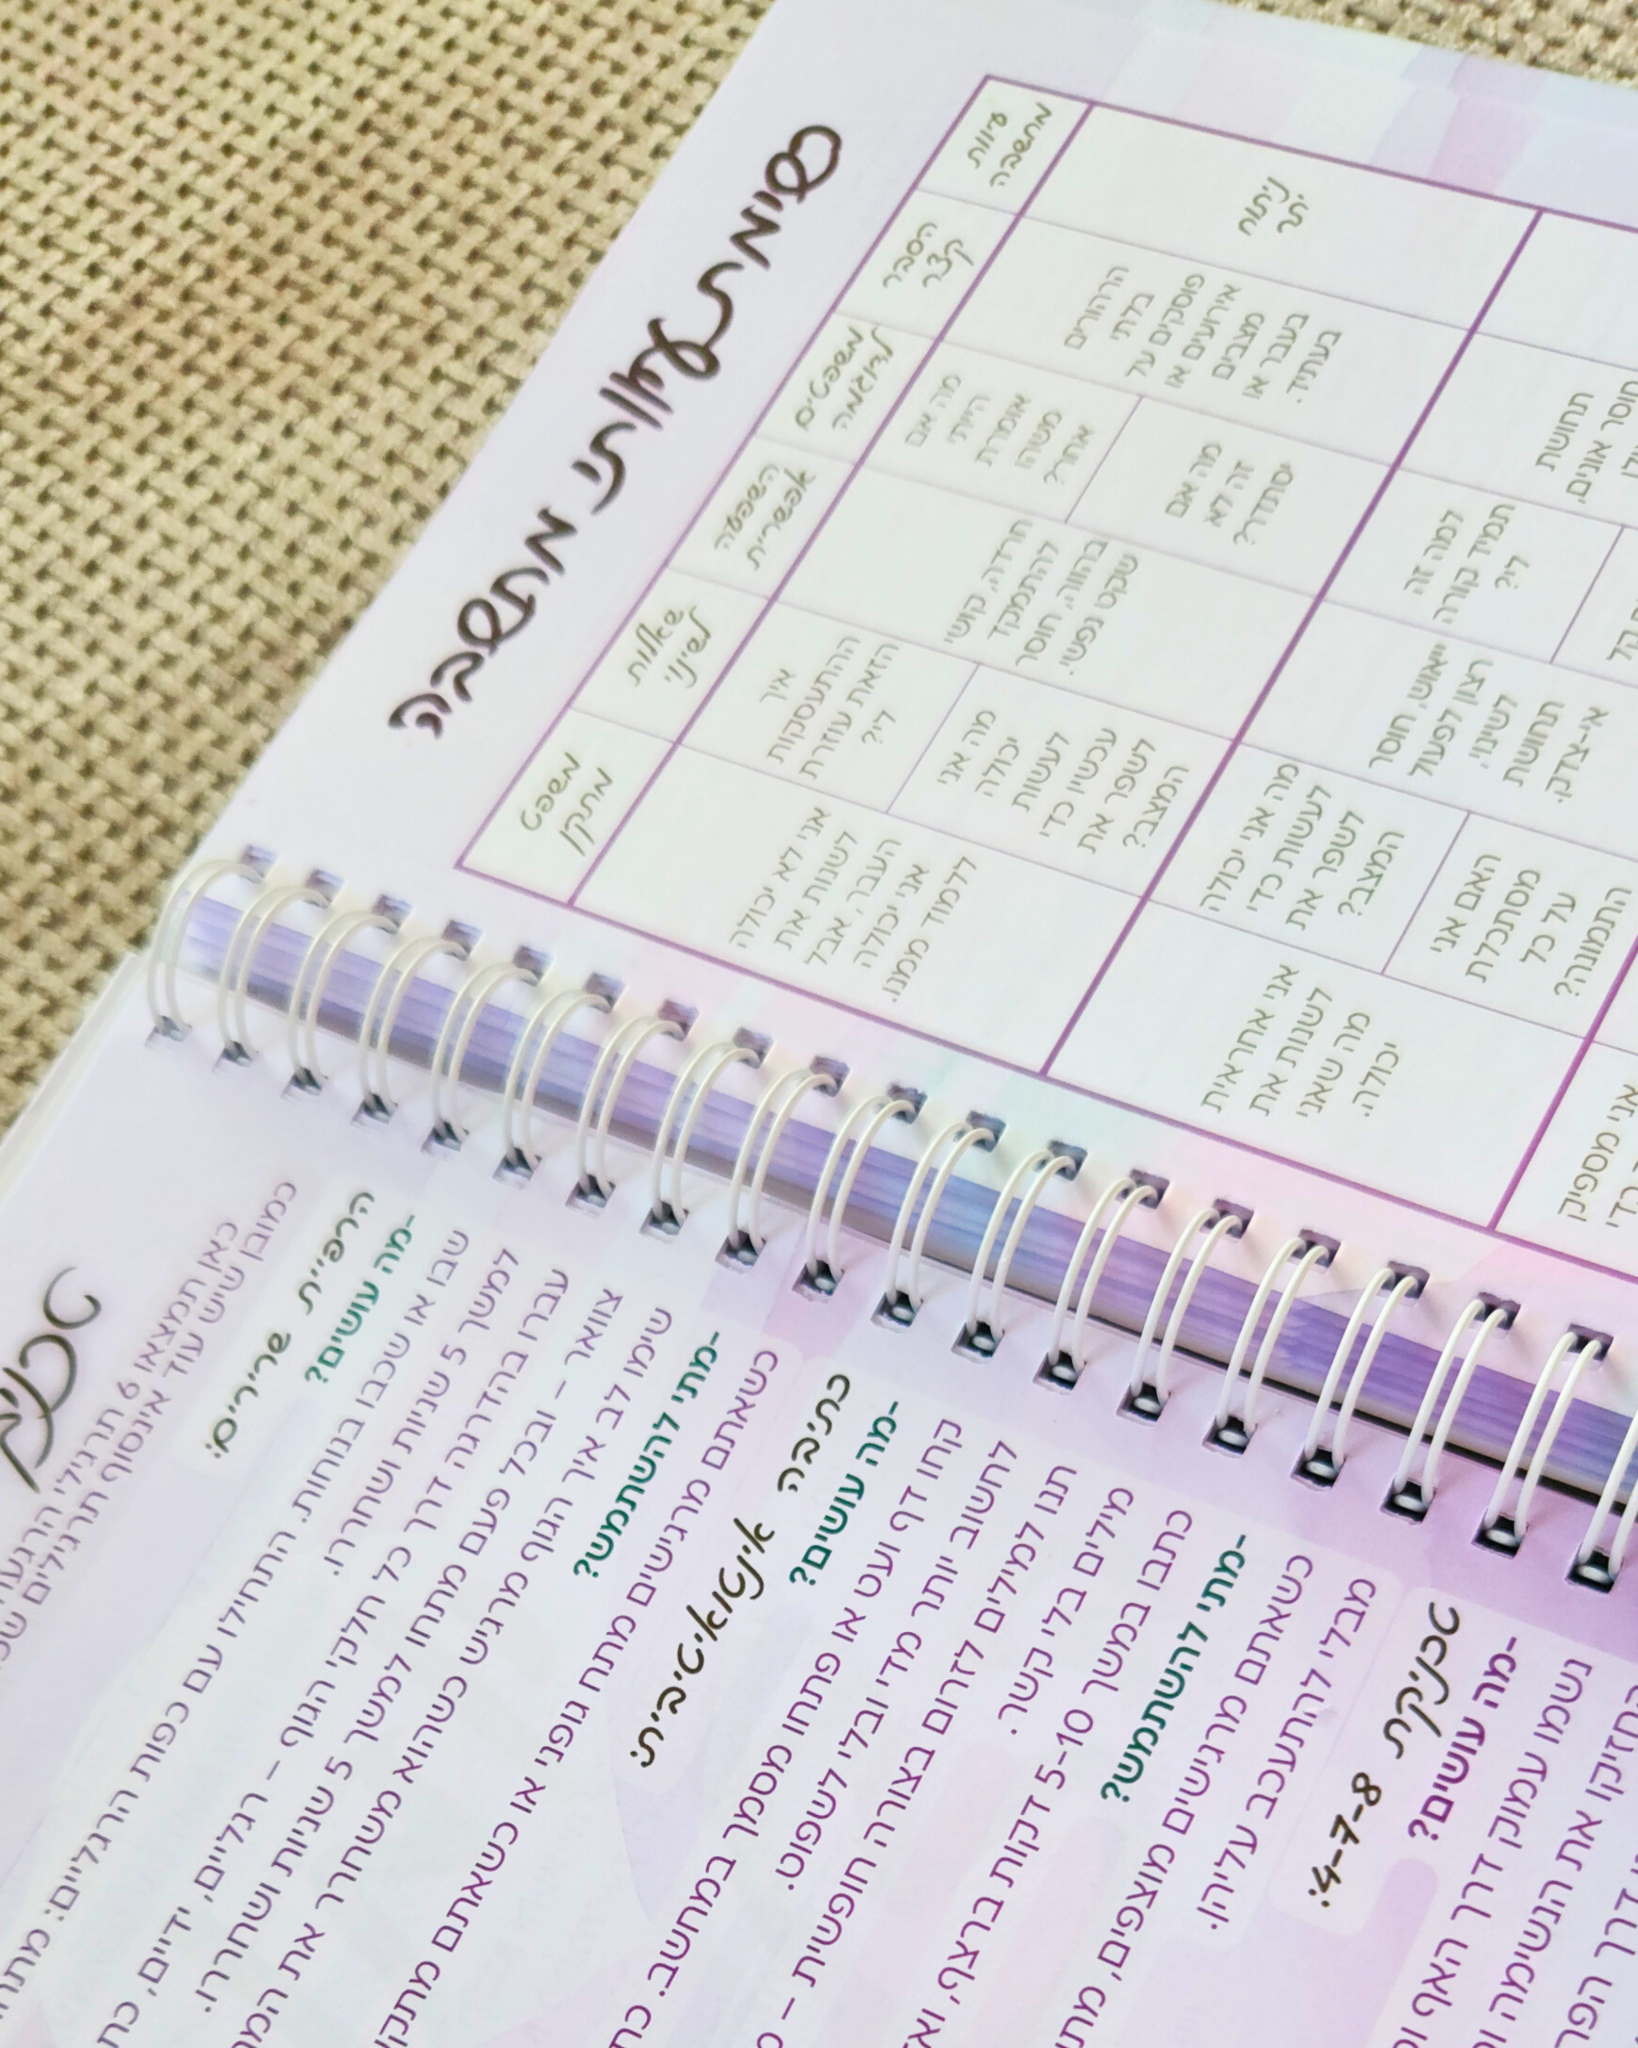 רשימת עיוותי מחשבה
עיוות
מחשבה
הסבר
קצר
משפטים
לדוגמה
השפעה
אפשרית
שאלות
לשינוי
משפט
מתקן
ניתוח
יתר
הרהורים
בלתי
פוסקים על
אירועים או
מצבים
בעבר או
בעתיד.
מה אם
הייתי
אומרת
משהו
אחר?
מה אם
זה לא
יסתדר?
חרדה, קושי
להתמקד
בהווה, חוסר
שקט נפשי.
איך
ההתעסקות
הזאת עוזרת
לי?
מה אני
יכולה
לעשות
עכשיו כדי
לשפר את
המצב?
אני לא יכולה
לשנות את
העבר, אבל
אני יכולה
ללמוד ממנו.
תחושת
חוסר אונים,
למה זה
תמיד קורה
לי?
ייאוש, חוסר
רצון לפעול
לשינוי,
תחושת
אי-צדק.
מה אני יכולה
לעשות כדי
לשפר את
המצב?
האם אני
מסתכלת
על כל
התמונה?
אני אחראית
לשנות את
מה שאני
יכולה.
אני מספיק
כאן תמצאו 6 תרגילי
כמובן שיש עוד אינסוף תרגילים
הרפיית שרירים:
-מה עושים?
שבו או שכבו בנוחות. התחילו עם כפות הרגליים: מתחו
למשך 5 שניות ושחררו.
עברו בהדרגה דרך כל חלקי הגוף – רגליים, ידיים,
צוואר – ובכל פעם מתחו למשך 5 שניות ושחררו.
שימו לב איך הגוף מרגיש כשהוא משחרר את
-מתי להשתמש?
כשאתם מרגישים מתח גופני או כשאתם
כתיבה אינטואיטיבית:
-מה עושים?
קחו דף ועט או פתחו מסמך במחשב.
לחשוב יותר מדי ובלי לשפוט.
תנו למילים לזרום בצורה חופשית –
מילים בלי קשר.
כתבו במשך 5-10 דקות ברצף,
-מתי להשתמש?
כשאתם מרגישים מוצפים,
מבלי להתעכב עליהן.
טכניקת 4-7-8:
-מה עושים?
נשמו עמוק דרך האף
החזיקו את הנשימה
דרך הפה